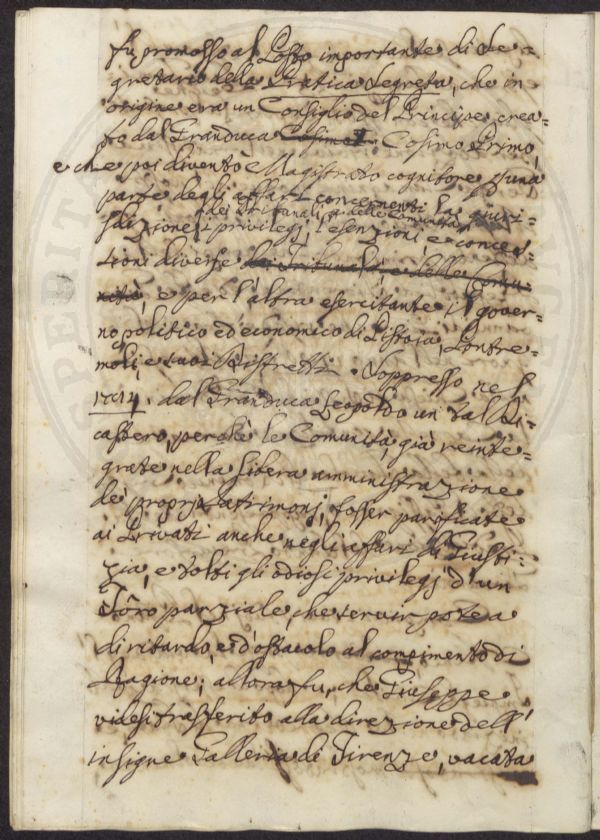 fu promosso al Posto importante di Se=
gretario della Pratica Segreta, che in
origine era un Consiglio del Principe, crea=
to dal Granduca Cosimo I. Cosimo Primo,
e che poi diventò Magistrato cognitore p una
parte degli affari concernenti la giuri=
dei Tribunali, e delle Comunità
sdizione, i privilegj, l'esenzioni e conces=
sioni diverse dei Tribunali, e delle Comu
nità, e per l'altra esercitante il gover=
no politico ed economico di Pistoia, Pontre=
moli, e suoi Ristretti. Soppresso nel
dal Granduca Leopoldo un tal Di
castero, perchè le Comunità, già reinte=
grate nella libera amministrazione
de' proprj Patrimonj, fosser parificate
ai Privati anche negli affari di Giusti=
zia, e tolti gli odiosi privilegj d'un
Foro parziale, che servir potea
di ritardo, e d'ostacolo al compimento di
Ragione; allora fu, che Giuseppe
videsi trasferito alla direzione dell'
insigne Galleria di Firenze, vacata